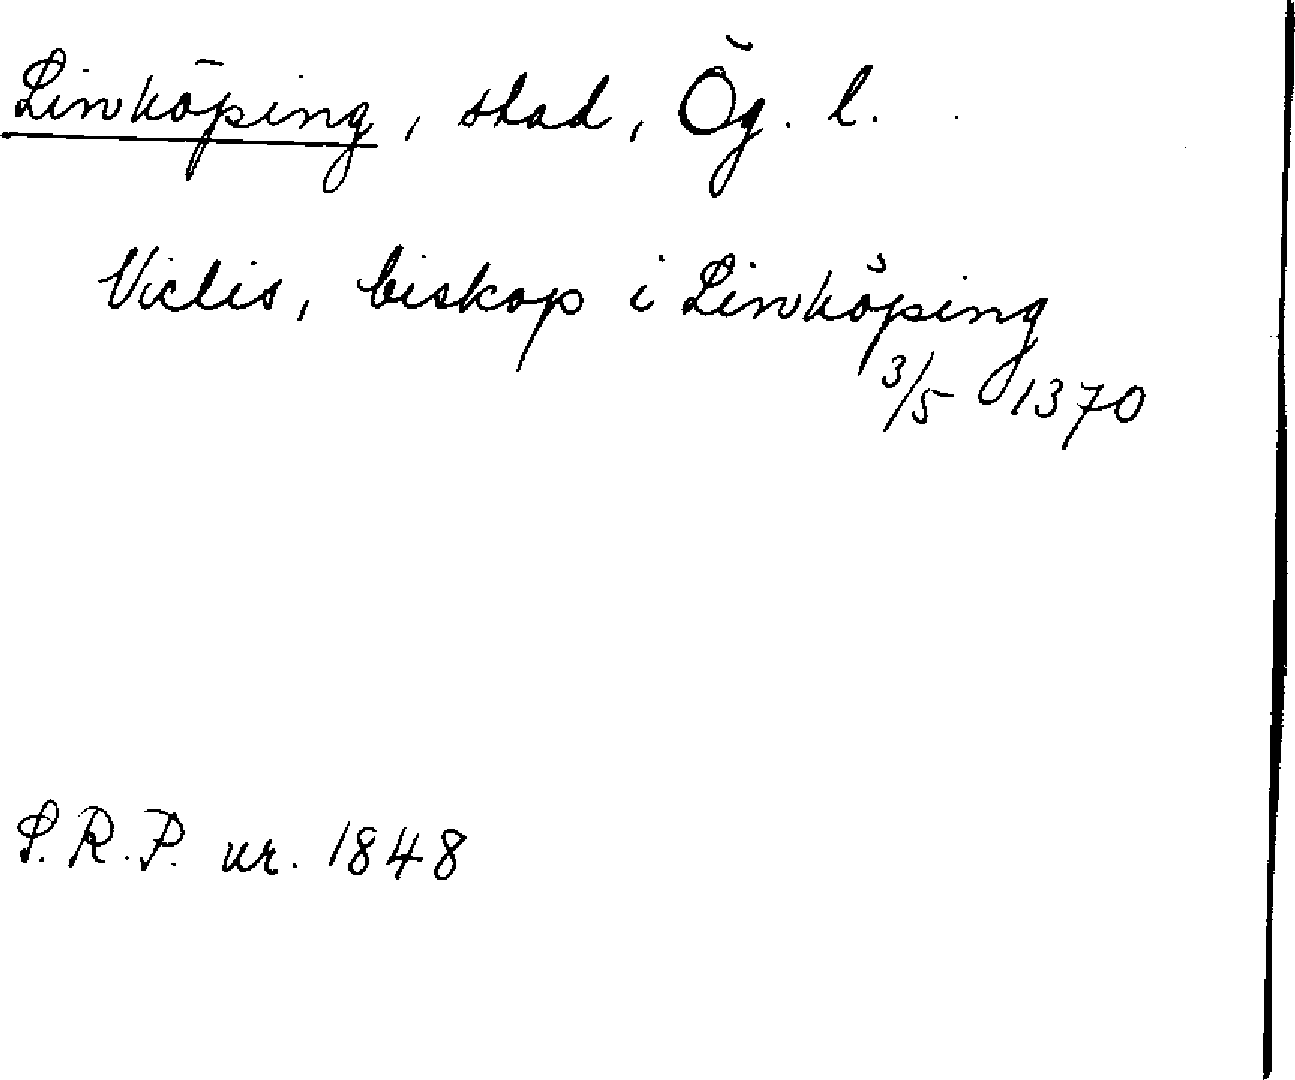 Linköping, stad, Ög. l.
Niclis, biskop i Linköping
3/5 1370
S.R.P. nr. 1848